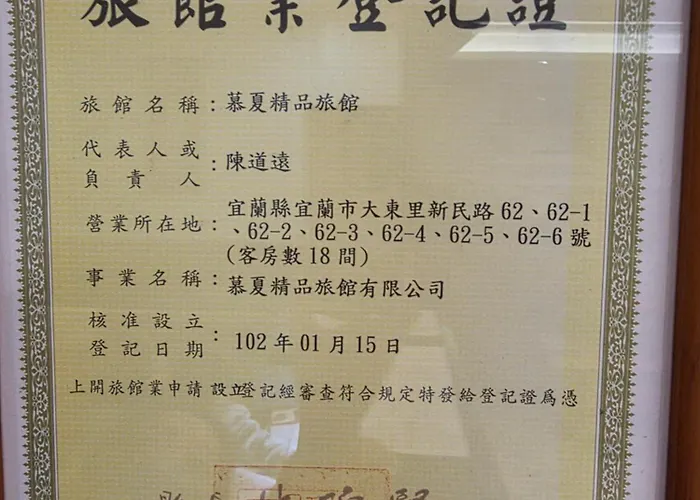 旅館業登記證
旅館名稱：慕夏精品旅館
代表人或
負責人：陳道遠
營業所在地：宜蘭縣宜蘭市大東里新民路62、62-1
、62-2、62-3、62-4、62-5、62-6號
(客房數18間)
事業名稱：慕夏精品旅館有限公司
核准設立
登記日期：102年01月15日
上開旅館業申請設立登記經審查符合規定特發給登記證為憑